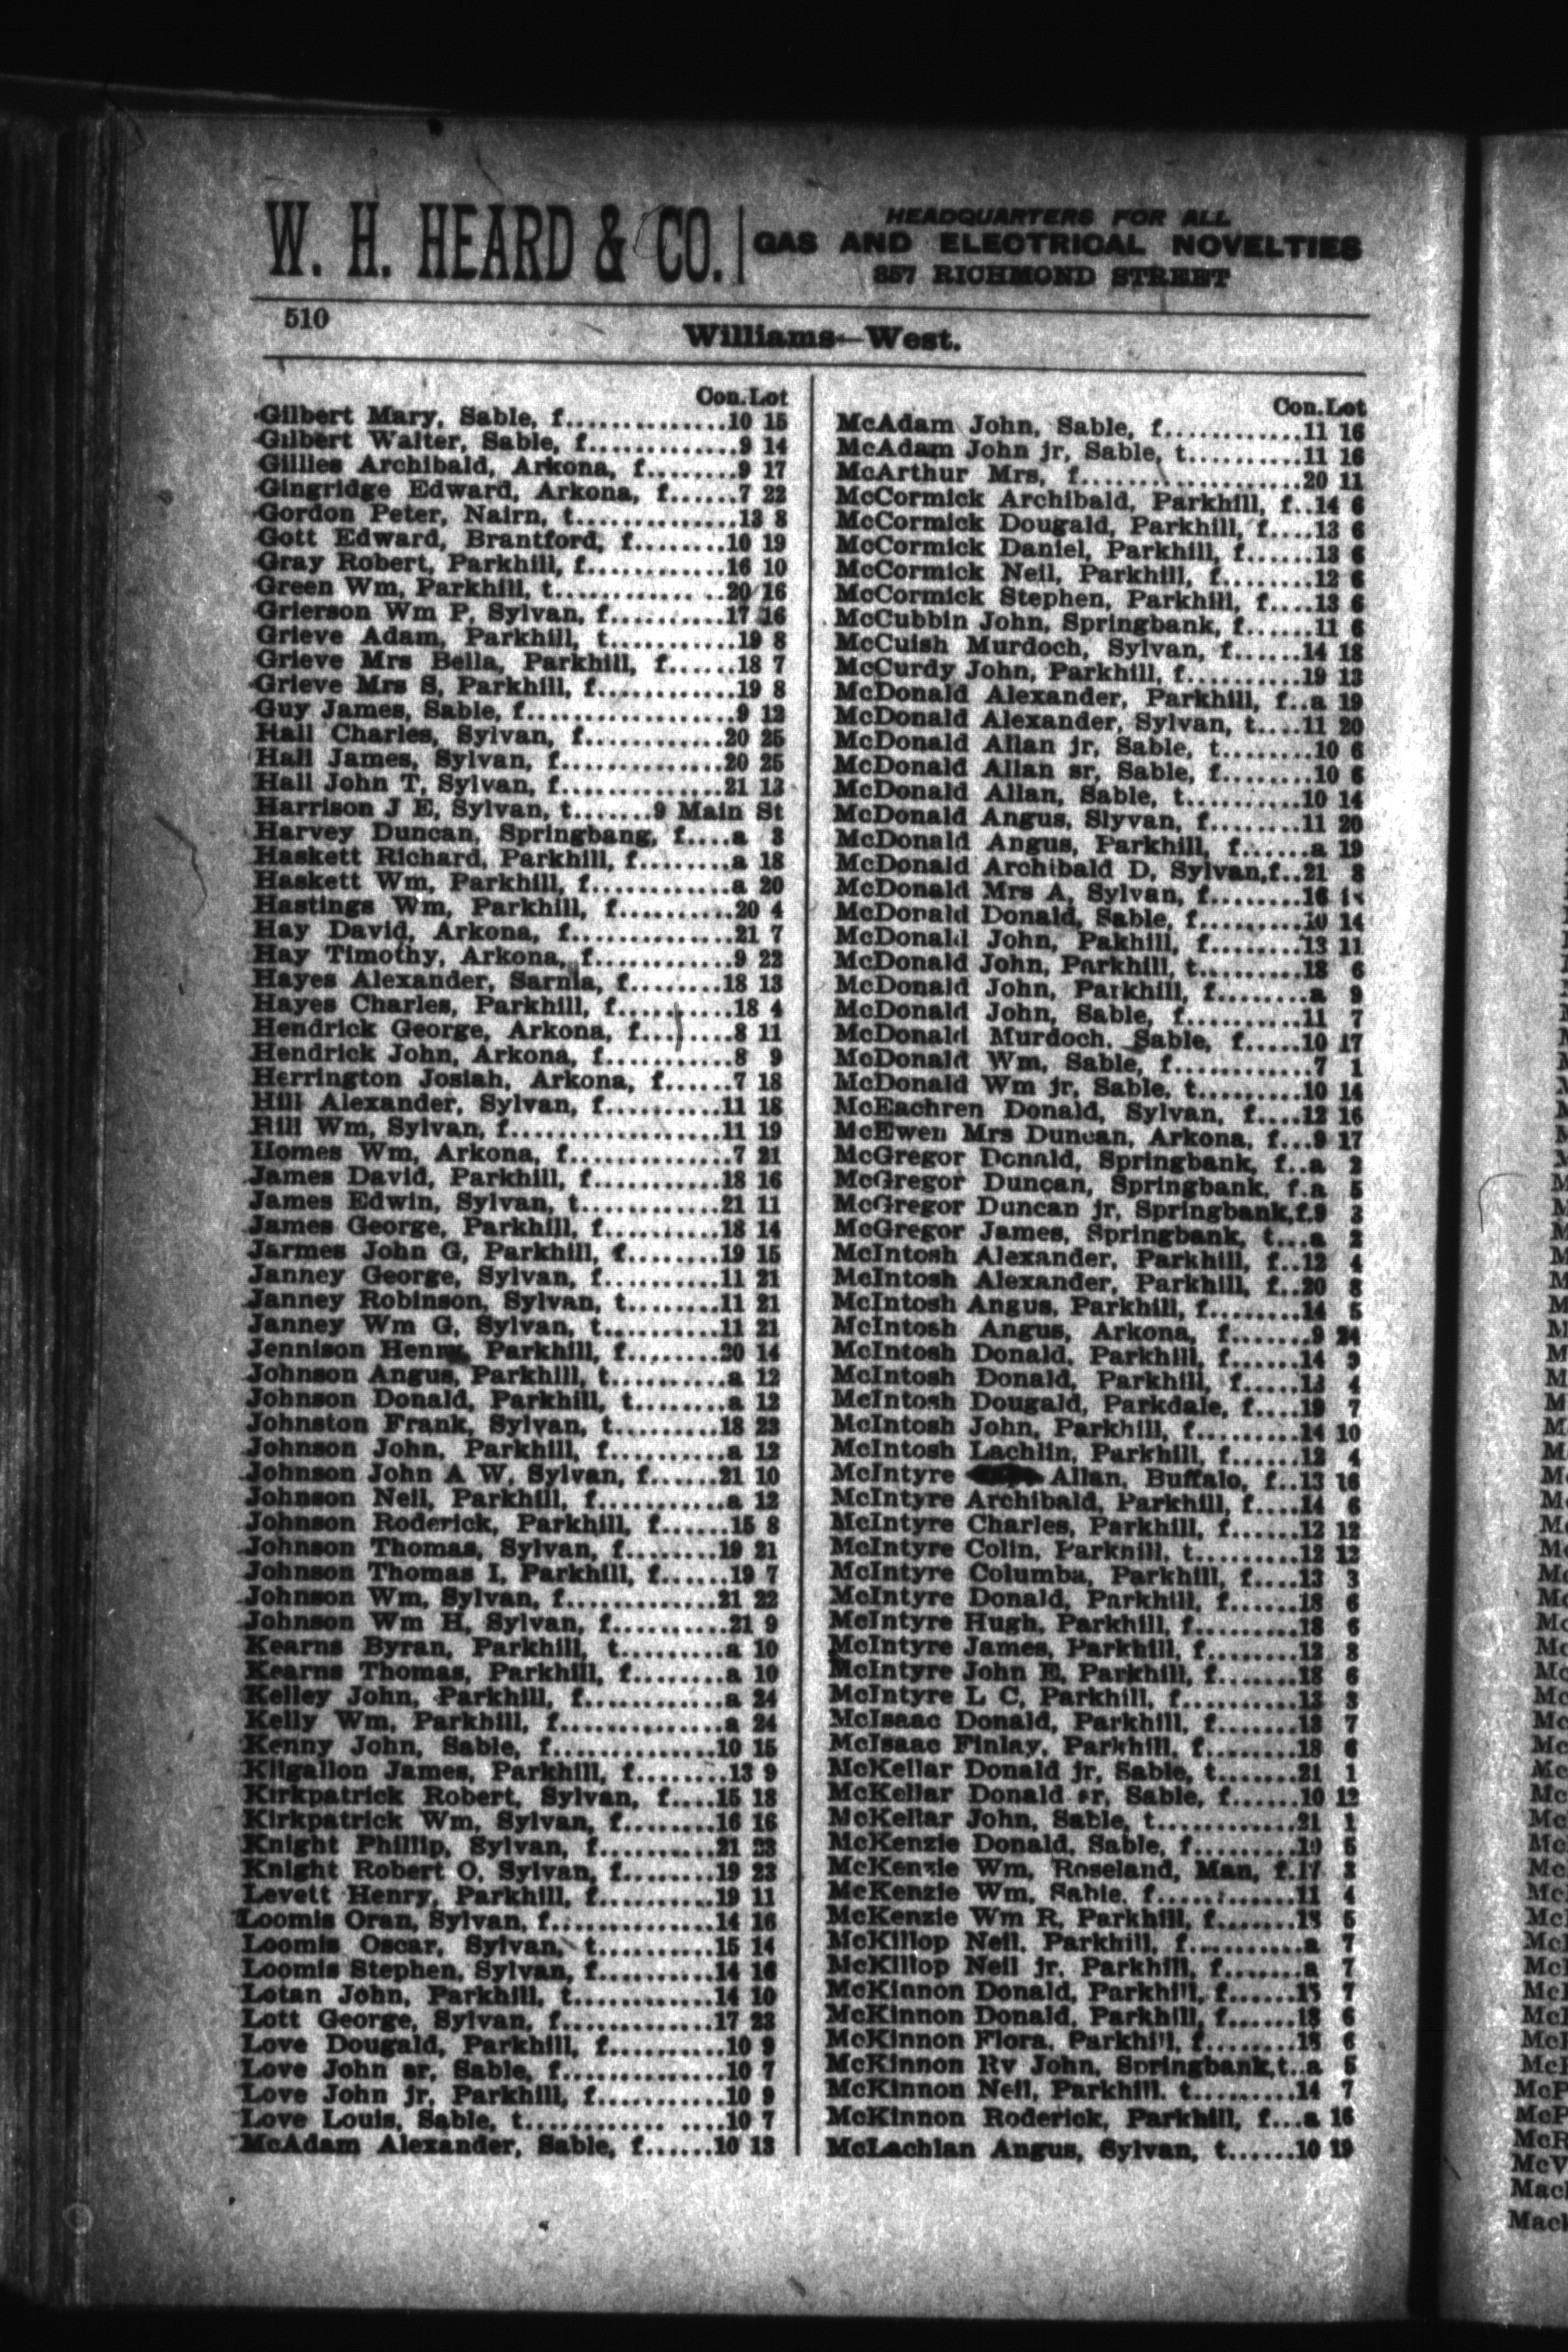 W. H. HEARD & CO.
HEADQUARTERS FOR ALL
GAS AND ELECTRICAL NOVELTIES
357 RICHMOND STREET
510
Williams—West.
Con. Lot
Gilbert Mary, Sable, f..............10 15
Gilbert Walter, Sable, f............9 14
Gillies Archibald, Arkona, f........9 17
Gingridge Edward, Arkona, f......7 22
Gordon Peter, Nairn, t..............13 8
Gott Edward, Brantford, f........10 19
Gray Robert, Parkhill, f............16 10
Green Wm, Parkhill, t..............20 16
Grierson Wm P, Sylvan, f..........17 16
Grieve Adam, Parkhill, t...........19 8
Grieve Mrs Bella, Parkhill, f......18 7
Grieve Mrs S, Parkhill, f............19 8
Guy James, Sable, f..................9 12
Hall Charles, Sylvan, f............20 25
Hall James, Sylvan, f..............20 25
Hall John T, Sylvan, f..............21 13
Harrison J E, Sylvan, t.......9 Main St
Harvey Duncan, Springbang, f....a 3
Haskett Richard, Parkhill, f........a 18
Haskett Wm, Parkhill, f............a 20
Hastings Wm, Parkhill, f..........20 4
Hay David, Arkona, f..............21 7
Hay Timothy, Arkona, f............9 22
Hayes Alexander, Sarnia, f........18 13
Hayes Charles, Parkhill, f..........18 4
Hendrick George, Arkona, f........8 11
Hendrick John, Arkona, f...........8 9
Herrington Josiah, Arkona, f......7 18
Hill Alexander, Sylvan, f..........11 18
Hill Wm, Sylvan, f..................11 19
Homes Wm, Arkona, f..............7 21
James David, Parkhill, f............18 16
James Edwin, Sylvan, t............21 11
James George, Parkhill, f..........18 14
Jarmes John G, Parkhill, f........19 15
Janney George, Sylvan, f..........11 21
Janney Robinson, Sylvan, t........11 21
Janney Wm G, Sylvan, t...........11 21
Jennison Henry, Parkhill, f........20 14
Johnson Angus, Parkhill, t..........a 12
Johnson Donald, Parkhill, t........a 12
Johnston Frank, Sylvan, t.........18 23
Johnson John, Parkhill, f..........a 12
Johnson John A W, Sylvan, f......21 10
Johnson Neil, Parkhill, f...........a 12
Johnson Roderick, Parkhill, f......15 8
Johnson Thomas, Sylvan, f........19 21
Johnson Thomas I, Parkhill, f......19 7
Johnson Wm, Sylvan, f.............21 22
Johnson Wm H, Sylvan, f...........21 9
Kearns Byran, Parkhill, t..........a 10
Kearns Thomas, Parkhill, f.........a 10
Kelley John, Parkhill, f............a 24
Kelly Wm, Parkhill, f..............a 24
Kenny John, Sable, f..............10 15
Kilgallon James, Parkhill, f........13 9
Kirkpatrick Robert, Sylvan, f....15 18
Kirkpatrick Wm, Sylvan, f........16 16
Knight Phillip, Sylvan, f..........21 23
Knight Robert O, Sylvan, f........19 23
Levett Henry, Parkhill, f..........19 11
Loomis Oran, Sylvan, f............14 16
Loomis Oscar, Sylvan, t...........15 14
Loomis Stephen, Sylvan, f.........14 16
Lotan John, Parkhill, t............14 10
Lott George, Sylvan, f.............17 23
Love Dougald, Parkhill, f..........10 9
Love John sr, Sable, f..............10 7
Love John jr, Parkhill, f..........10 9
Love Louis, Sable, t................10 7
McAdam Alexander, Sable, f......10 13
Con. Lot
McAdam John, Sable, f............11 16
McAdam John jr, Sable, t..........11 16
McArthur Mrs, f....................20 11
McCormick Archibald, Parkhill, f..14 6
McCormick Dougald, Parkhill, f....13 6
McCormick Daniel, Parkhill, f......13 6
McCormick Neil, Parkhill, f........12 6
McCormick Stephen, Parkhill, f....13 6
McCubbin John, Springbank, f......11 6
McCuish Murdoch, Sylvan, f......14 18
McCurdy John, Parkhill, f..........19 13
McDonald Alexander, Parkhill, f..a 19
McDonald Alexander, Sylvan, t....11 20
McDonald Allan jr, Sable, t........10 6
McDonald Allan sr, Sable, f........10 6
McDonald Allan, Sable, t..........10 14
McDonald Angus, Slyvan, f........11 20
McDonald Angus, Parkhill, f.......a 19
McDonald Archibald D, Sylvan,f..21 8
McDonald Mrs A, Sylvan, f........16
McDonald Donald, Sable, f........10 14
McDonald John, Pakhill, f.........13 11
McDonald John, Parkhill, t.........18 6
McDonald John, Parkhill, f.........a 9
McDonald John, Sable, f..........11 7
McDonald Murdoch, Sable, f.....10 17
McDonald Wm, Sable, f............7 1
McDonald Wm jr, Sable, t.........10 14
McEachren Donald, Sylvan, f....12 16
McEwen Mrs Duncan, Arkona, f...9 17
McGregor Donald, Springbank, f..a 2
McGregor Duncan, Springbank, f.a 5
McGregor Duncan jr, Springbank,f.9
McGregor James, Springbank, t...a 2
McIntosh Alexander, Parkhill, f..12 4
McIntosh Alexander, Parkhill, f..20 8
McIntosh Angus, Parkhill, f........14 5
McIntosh Angus, Arkona, f.......9 24
McIntosh Donald, Parkhill, f......14
McIntosh Donald, Parkhill, f...... 4
McIntosh Dougald, Parkdale, f....19 7
McIntosh John, Parkhill, f.........14 10
McIntosh Lachlin, Parkhill, f......12 4
McIntyre Allan, Buffalo, f..13 16
McIntyre Archibald, Parkhill, f....14 6
McIntyre Charles, Parkhill, f......12 12
McIntyre Colin, Parkhill, t.........12 12
McIntyre Columba, Parkhill, f....13 3
McIntyre Donald, Parkhill, f.......18 6
McIntyre Hugh, Parkhill, f.........18 6
McIntyre James, Parkhill, f........12 8
McIntyre John E, Parkhill, f.......18 6
McIntyre L C, Parkhill, f..........13 3
McIsaac Donald, Parkhill, f.......18 7
McIsaac Finlay, Parkhill, f........18 6
McKellar Donald jr, Sable, t.......21 1
McKellar Donald sr, Sable, f......10 12
McKellar John, Sable, t............21 1
McKenzie Donald, Sable, f.........10 5
McKenzie Wm, Roseland, Man, f.17 3
McKenzie Wm, Sable, f............11 4
McKenzie Wm R, Parkhill, f.......
McKillop Neil, Parkhill, f..........a 7
McKillop Neil jr, Parkhill, f.......a 7
McKinnon Donald, Parkhill, f..... 7
McKinnon Donald, Parkhill, f......18 6
McKinnon Flora, Parkhill, f........18 6
McKinnon Rv John, Springbank,t..a 5
McKinnon Neil, Parkhill, t.........14 7
McKinnon Roderick, Parkhill, f...a 16
McLachlan Angus, Sylvan, t......10 19